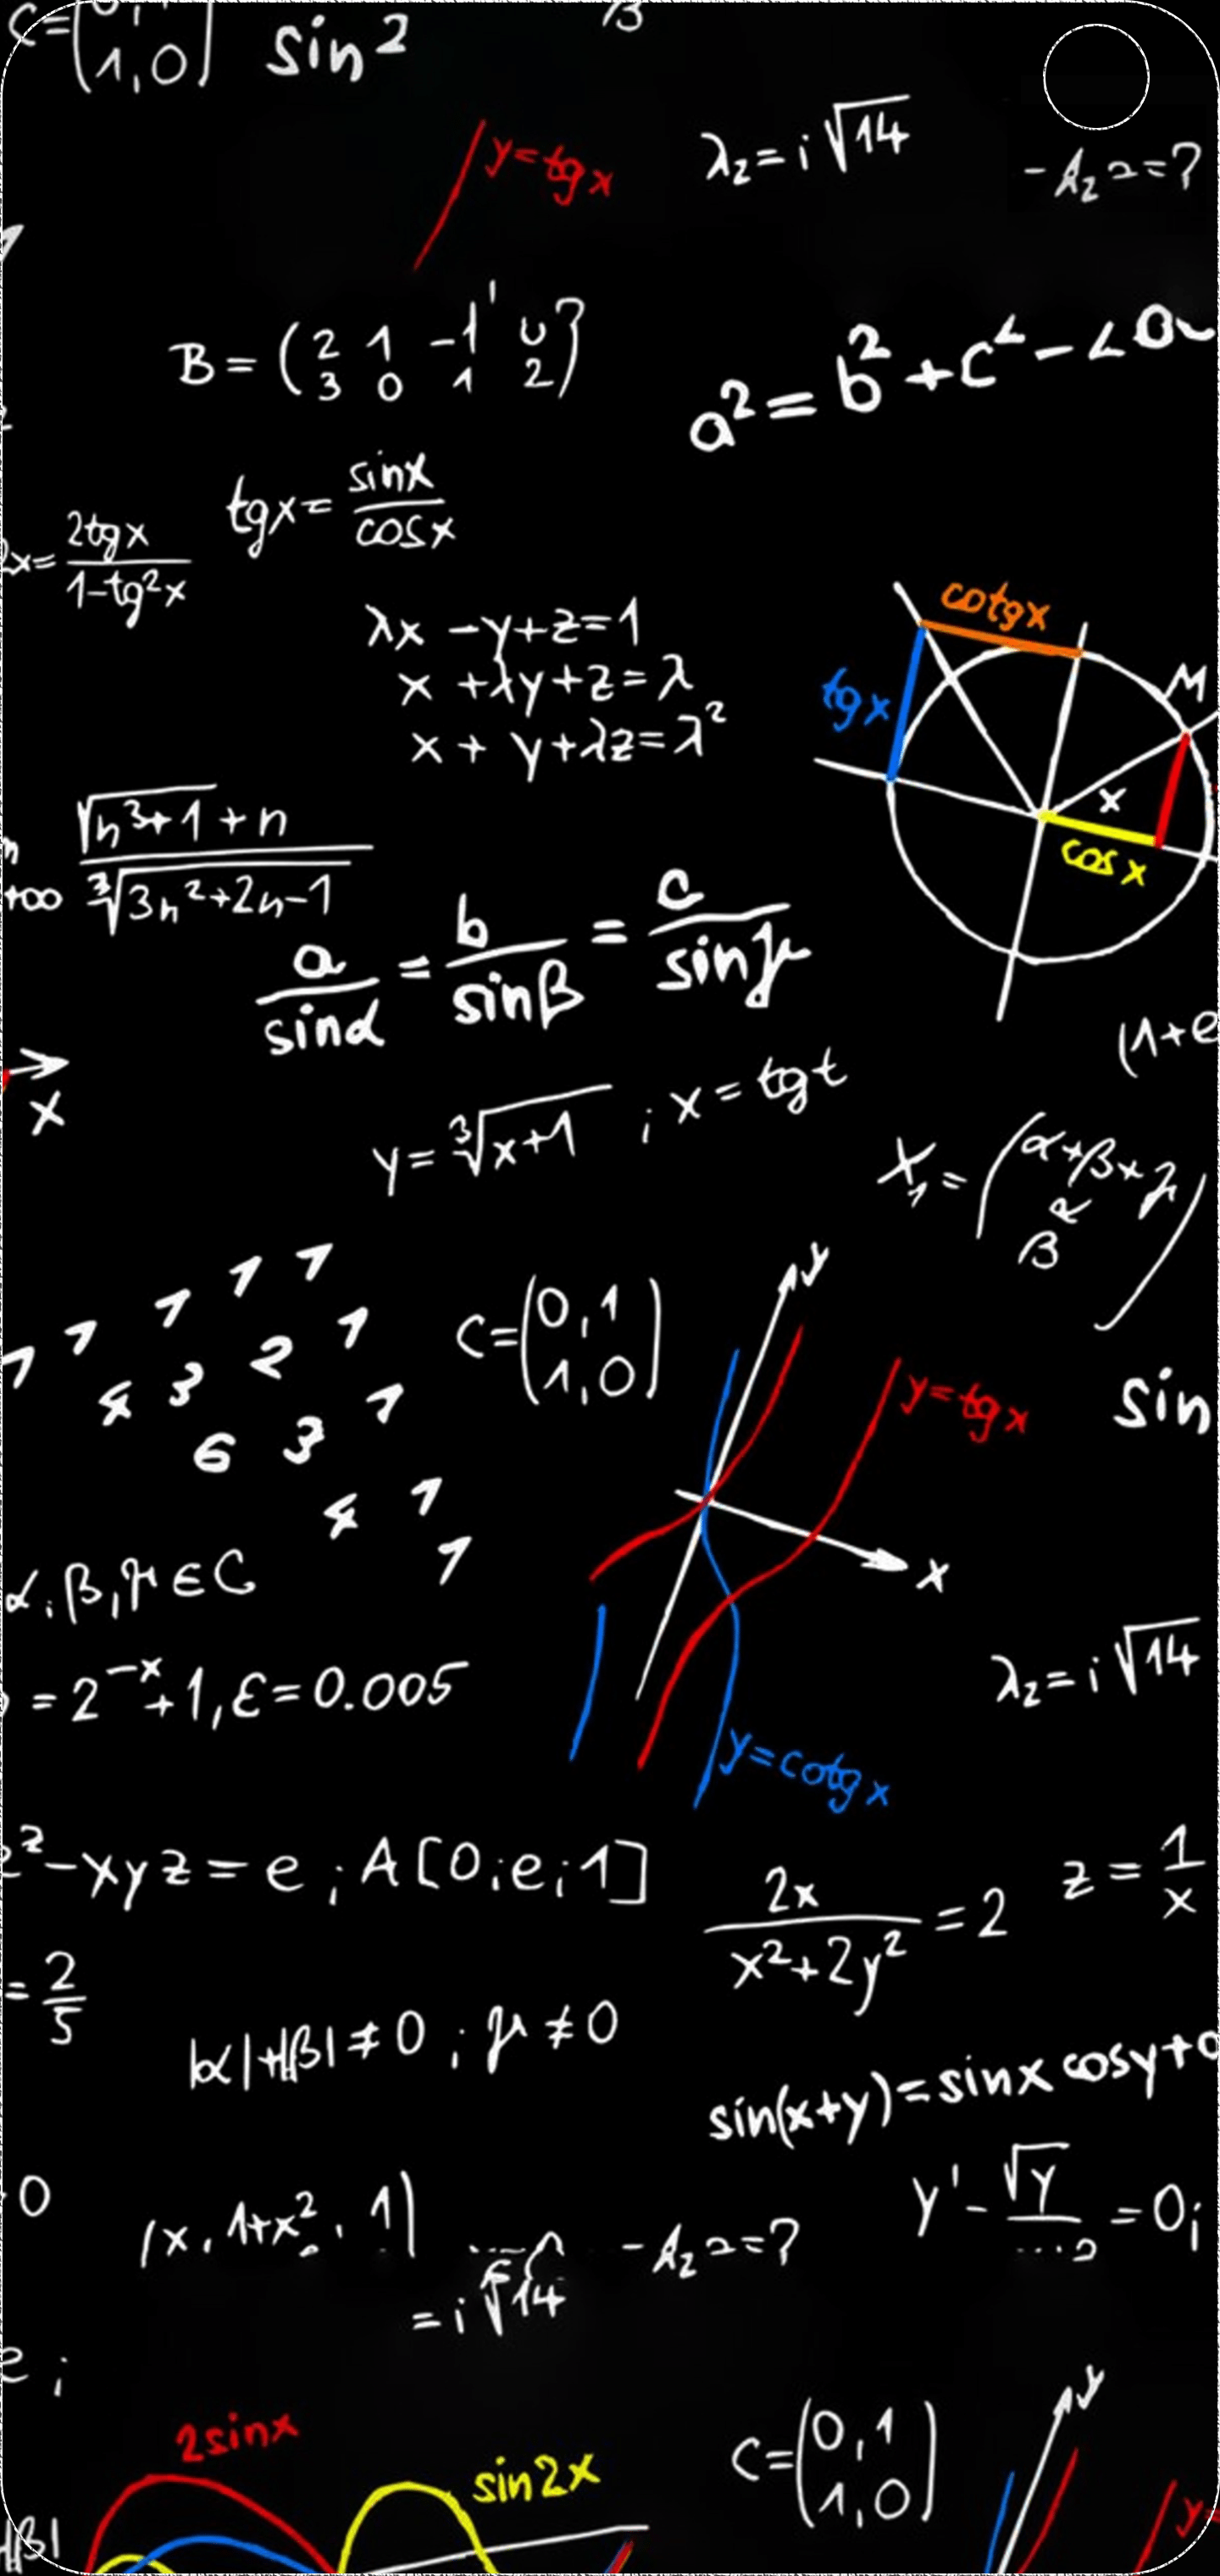 C=(0,1
1,0) sin²
y=tgx
λ₂=i√14
-A₂ 2=?
B=(2 1 -1 0
3 0 1 2)
a²=b²+c²-2
tgx=sinx/cosx
2x=2tgx/1-tg²x
cotgx
λx-y+z=1
x+λy+z=λ
x+y+λz=λ²
tgx
M
x
cosx
√n³+1+n/∛3n²+2n-1
+∞
a/sinα=b/sinβ=c/sinγ
(1+e
x
y=∛x+1; x=tgt
X₁=(α+β+γ
α
β)
1 1 1 1 1
4 3 2 1
6 3 1
4 1
1
C=(0,1
1,0)
y
y=tgx
sin
x
α,β,γ∈C
=2⁻ˣ+1,ε=0.005
λ₂=i√14
y=cotgx
²-xyz=e;A[0;e;1]
2x/x²+2y²=2
z=1/x
=2/5
|α|+|β|≠0;γ≠0
sin(x+y)=sinx cosy+
0
(x,1+x²,1)
-A₂ 2=?
y'-√y/ =0;
=i√14
e;
2sinx
sin2x
C=(0,1
1,0)
y
+|β|
y=